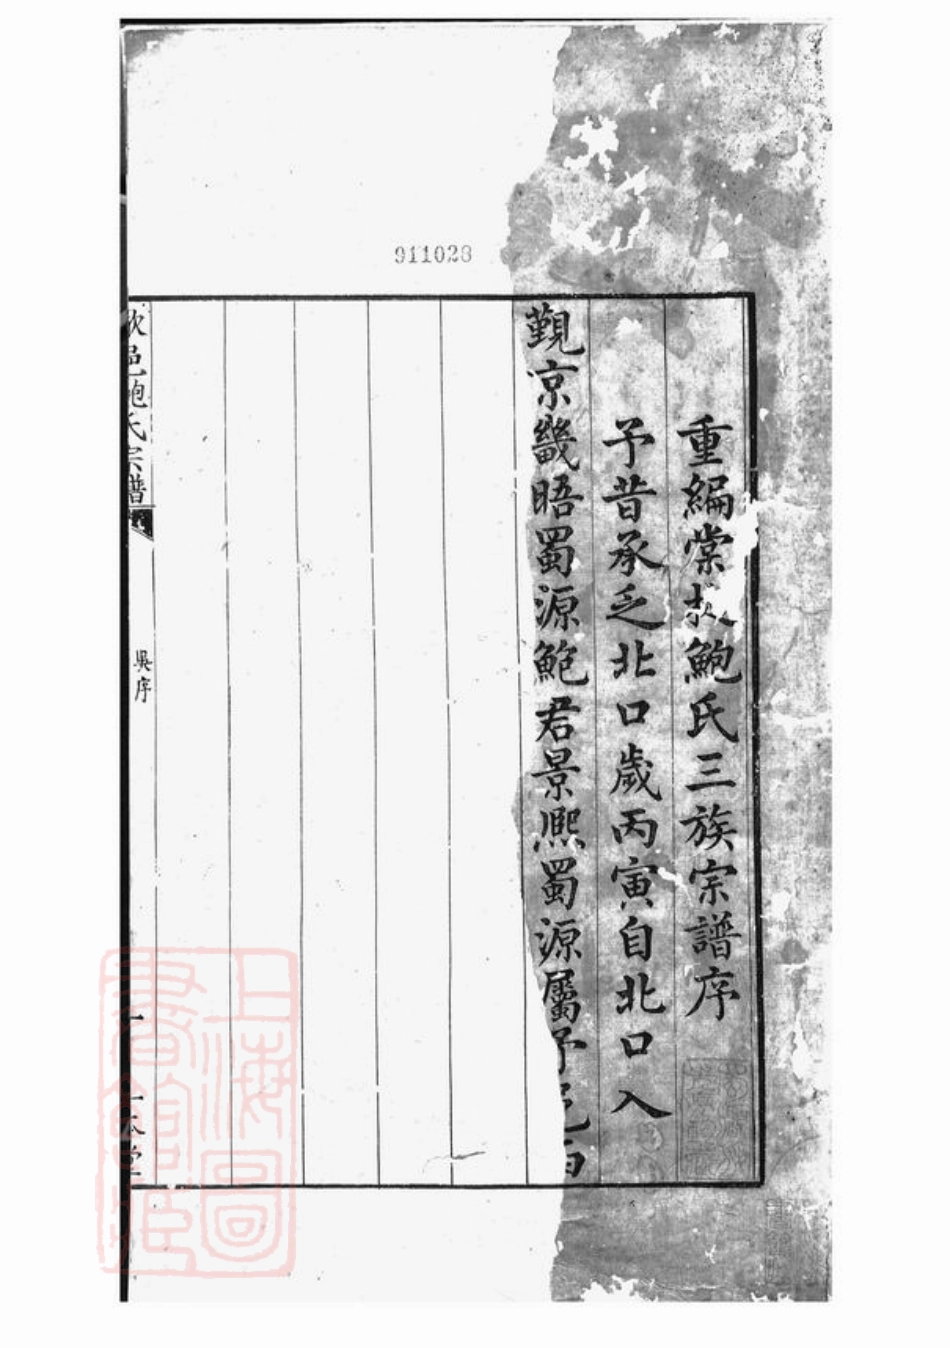 911028
重編棠樾鮑氏三族宗譜序
予昔承乏北口歲丙寅自北口入
覲京畿晤蜀源鮑君景熈蜀源屬予邑西
歙邑鮑氏宗譜
吳序
一
一本堂
上海圖書館藏